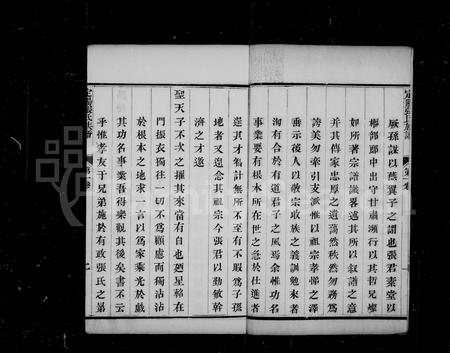 厥孫謀以燕翼子之謂也張君素堂以
樞部郎中出守甘肅瀕行以其哲兄燦
如所著宗譜議畧述其所以叙譜之意
并其傳家忠厚之遺蕩然秩然勿務為
誇美勿牽引支派惟以祖宗孝悌之澤
垂示後人以敬宗收族之義訓勉來者
洵有合於有道君子之風焉余惟功名
事業要有根本所在世之急於仕進者
逞其才智計無所不至有不暇為子孫
地者又遑念其祖宗今張君以勤敏幹
濟之才遭
聖天子不次之擢其來當有自也廼星軺在
門振衣獨往一切不為顧慮而獨沾沾
於根本之地求一言以為家乘光於戲
其功名事業吾得樂觀其後矣書不云
乎惟孝友于兄弟施於有政張氏之弟
張氏族譜
第一卷
二